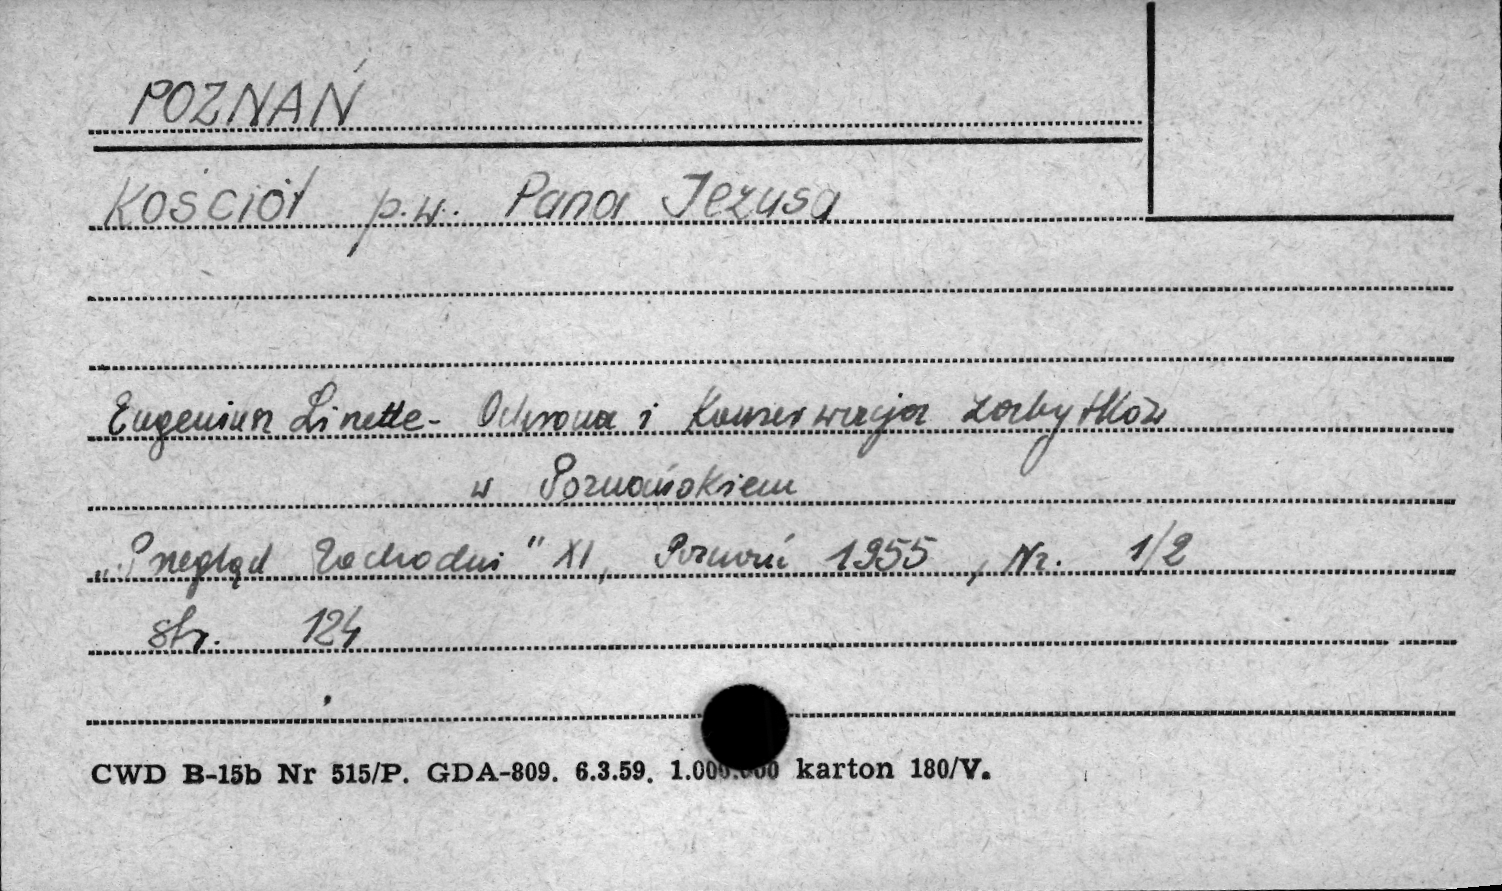 POZNAŃ
Kościół p.w. Pana Jezusa
Eugeniusz Linette - Ochrona i Konserwacja zabytków
w Poznańskiem
„Przegląd Zachodni" XI, Poznań 1955, Nr. 1/2
str. 124
CWD B-15b Nr 515/P. GDA-809. 6.3.59. 1.000.000 karton 180/V.